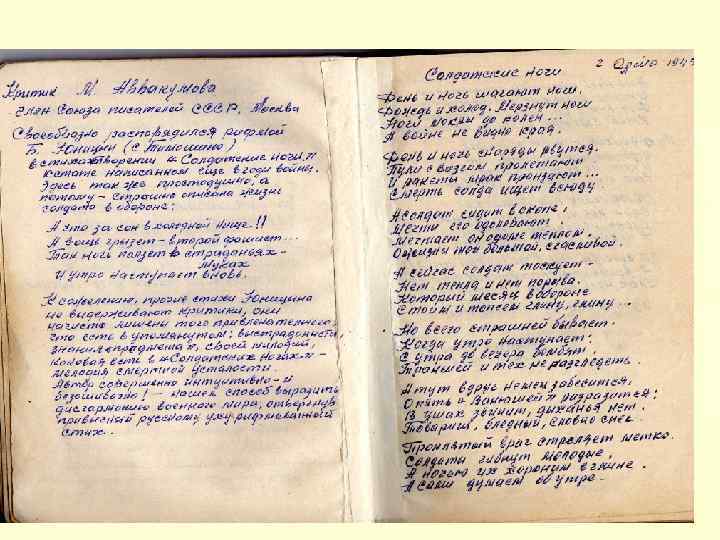 Критик М. Аввакумова
член Союза писателей СССР, Москва
Своеобразно распорядился рифмой
Б. Юницин (с. Тимошино)
в стихотворении „Солдатские ночи",
кстате написанном еще в годы войны.
Здесь так же простодушно, а
потому – страшно описана жизнь
солдата в обороне:
А что за сон в холодной нише!!
А вошь грызет – второй фашист...
Так ночь ползет в страданьях –
муках
И утро наступает вновь.
К сожалению, прочие стихи Юницина
не выдерживают критики, они
начисто лишены того привлекательного,
что есть в упомянутом: выстраданности,
знания солдатская, своей мелодии,
каковая есть в „Солдатских ночах" –
мелодия смертной усталости.
Автор совершенно интуитивно – и
безошибочно! – нашел способ выразить
дисгармонию военного мира, отвергнув
привычный русскому уху рифмованный
стих.
Солдатские ночи
2 1943
День и ночь шагают ноги.
Дождь и холод. Мерзнут ноги
Ноги мокры до колен...
А войне не видно края.
День и ночь снаряды рвутся.
Пули с визгом пролетают
И ракеты мрак пронзают...
Смерть солдата ищет всюду
А солдат сидит в окопе,
Мечты его одолевают.
Мечтает он о доме теплом,
О жизни той большой, счасливой.
А сейчас солдат тоскует –
Нет тепла и нет порыва.
Который месяц в обороне
Стоим и топчем глину, глину...
Но всего страшней бывает.
Когда утро наступает:
С утра до вечера бомбят,
Траншей и тех не разглядеть.
А тут вдруг немец забесится,
Опять „ Ванюшей" разразится:
В ушах звенит, дыханья нет.
Товарищ, бледный, словно снег.
Проклятый враг стреляет метко.
Солдаты гибнут молодые,
А ночью их хороним в глине.
А сами думаем об утре.